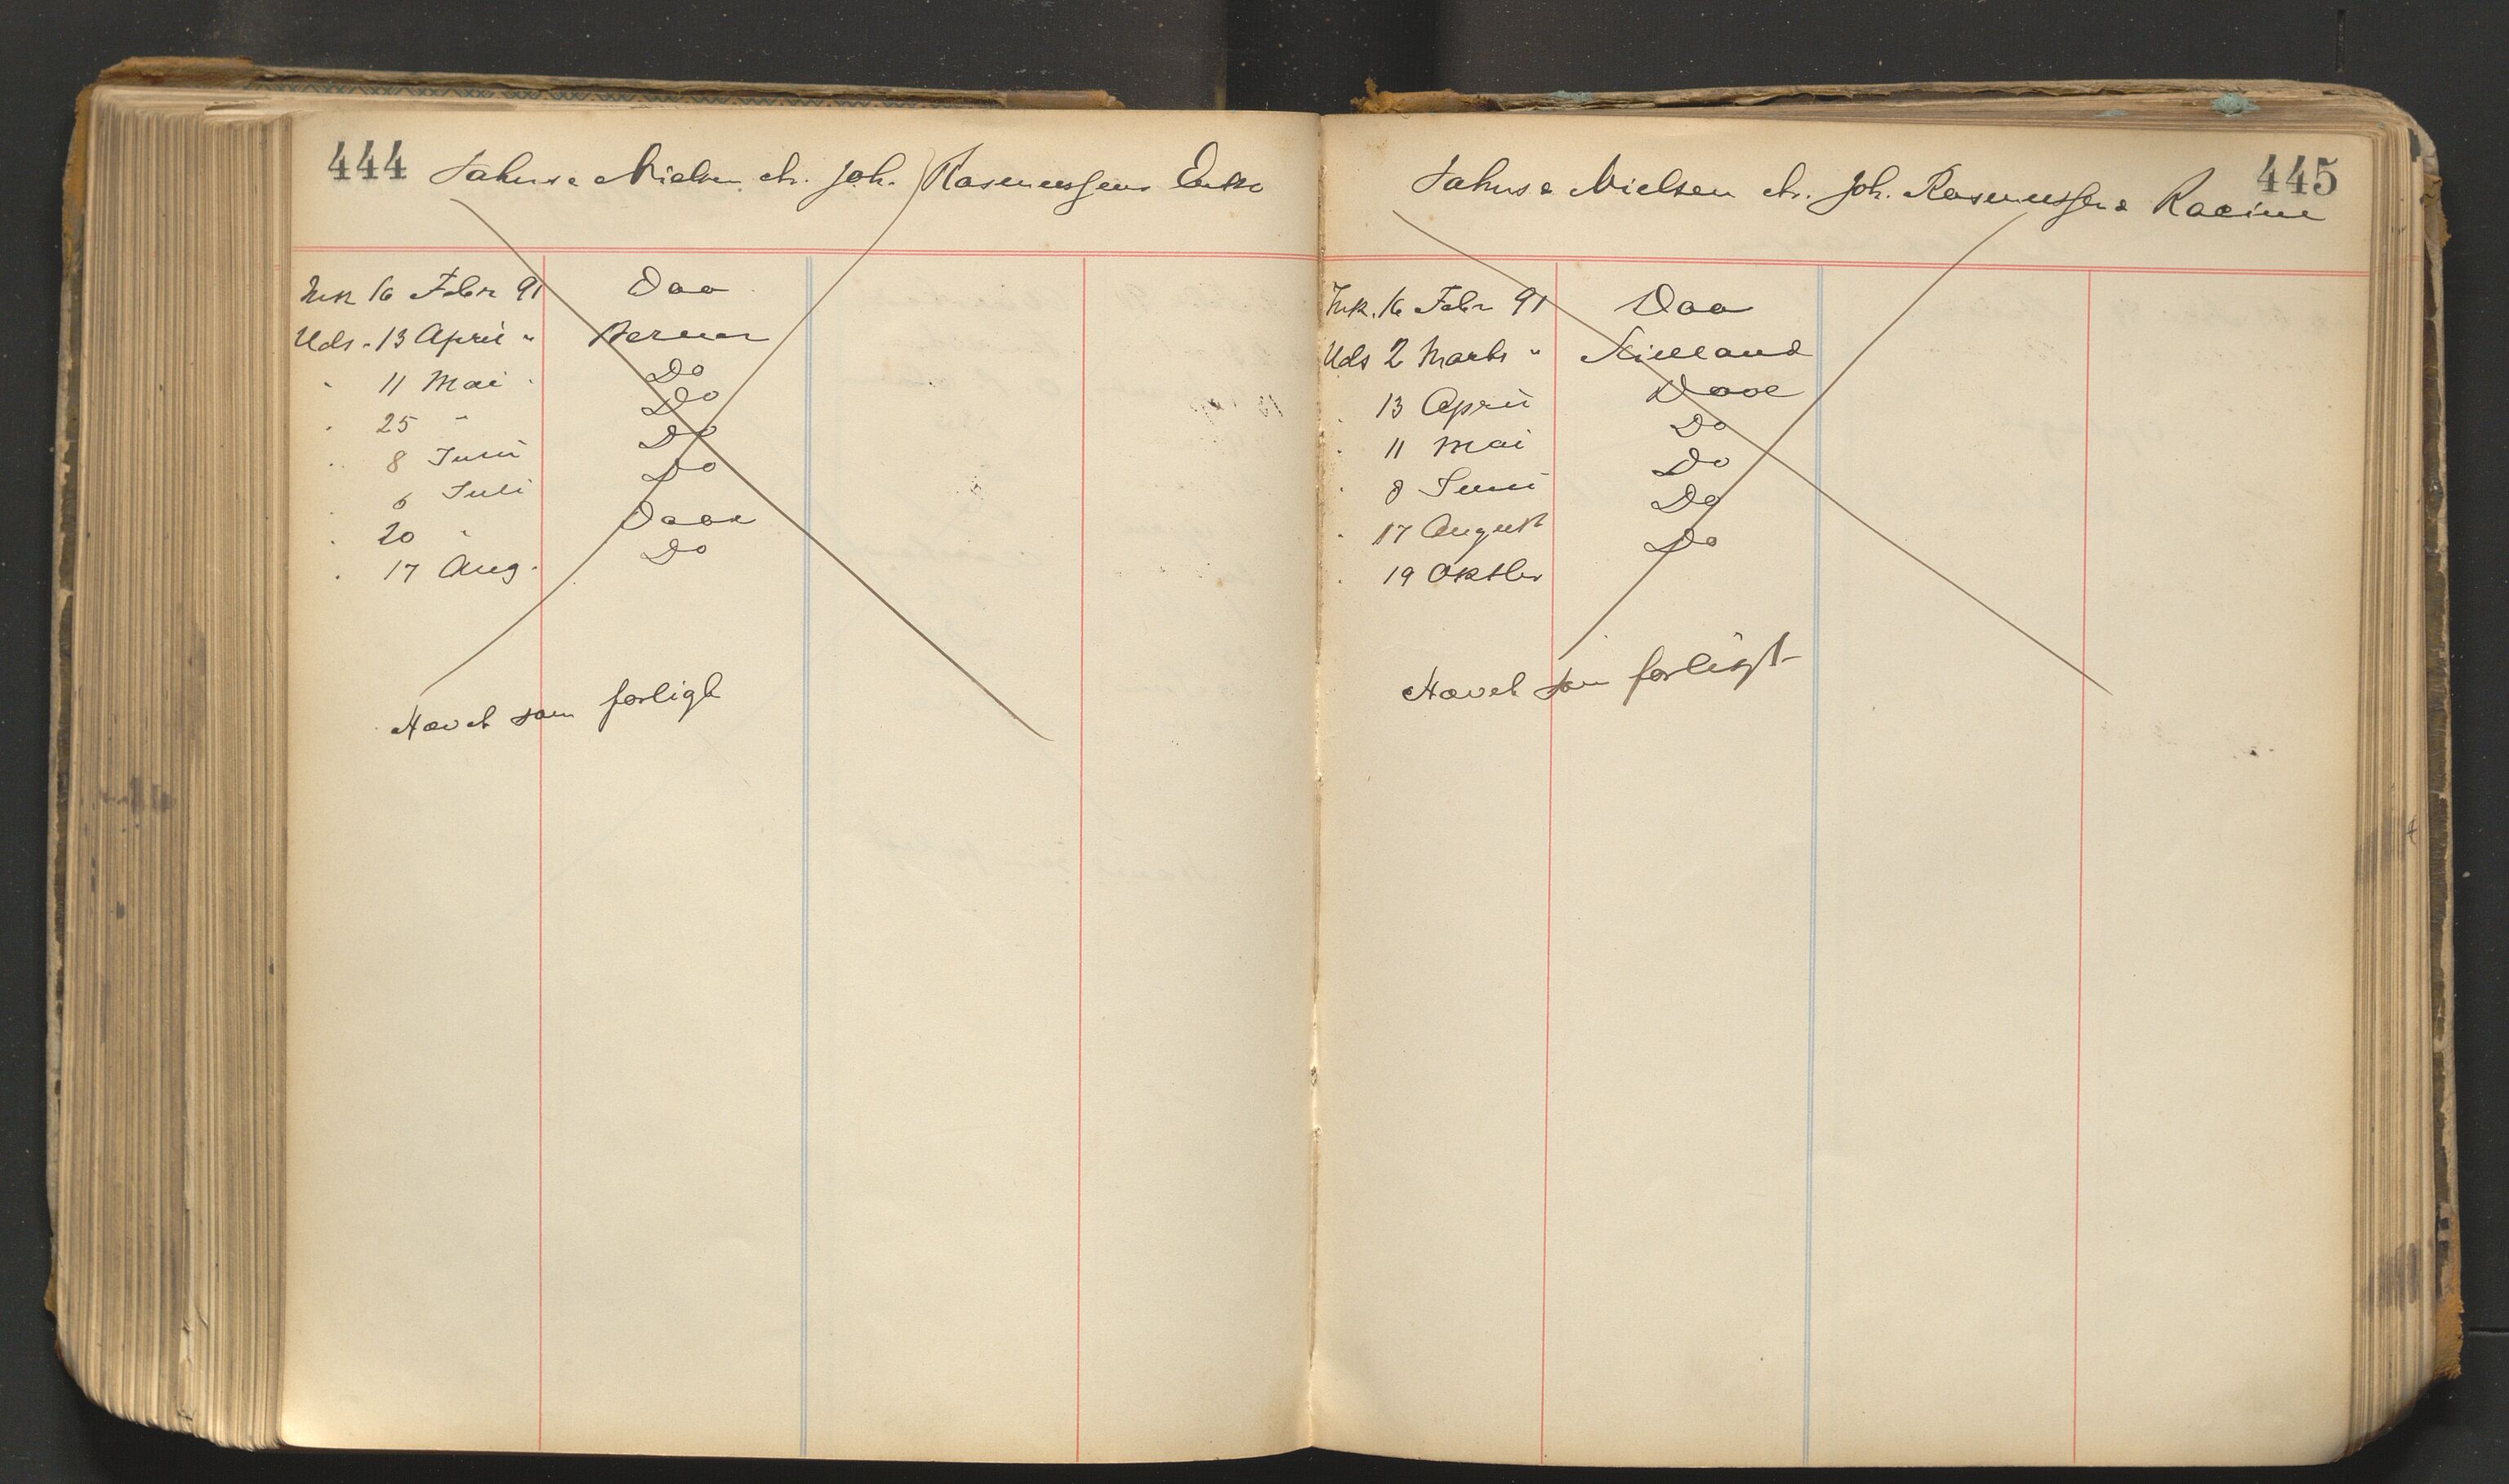 444 Nielsen ctr. Joh. Rasmussens Enke
Ink 16 Febr 91 Daa
Uds. 13 April " Berner
" 11 Mai " Do
" 25 " Do
" 8 Juni Do
" 6 Juli Do
" 20 " Daae
" 17 Aug. Do
Hævet som forligt
445
Nielsen ctr. Joh. Rasmussen & Racine
Ink. 16 Febr 91 Daa
Uds 2 Marts " Kielland
" 13 April Daae
" 11 Mai Do
" 8 Juni Do
" 17 August Do
" 19 Oktbr Do
Hævet som forligt